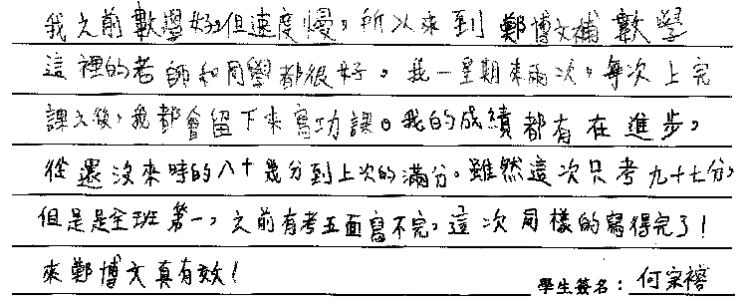 我之前數學好,但速度慢,所以來到鄭博文補數學
這裡的老師和同學都很好。我一星期來兩次,每次上完
課之後,我都會留下來寫功課。我的成績都有在進步,
從還沒來時的八十幾分到上次的滿分。雖然這次只考九十七分,
但是是全班第一,之前有考五面寫不完,這次同樣的寫得完了!
來鄭博文真有效!
學生簽名:何宗褣